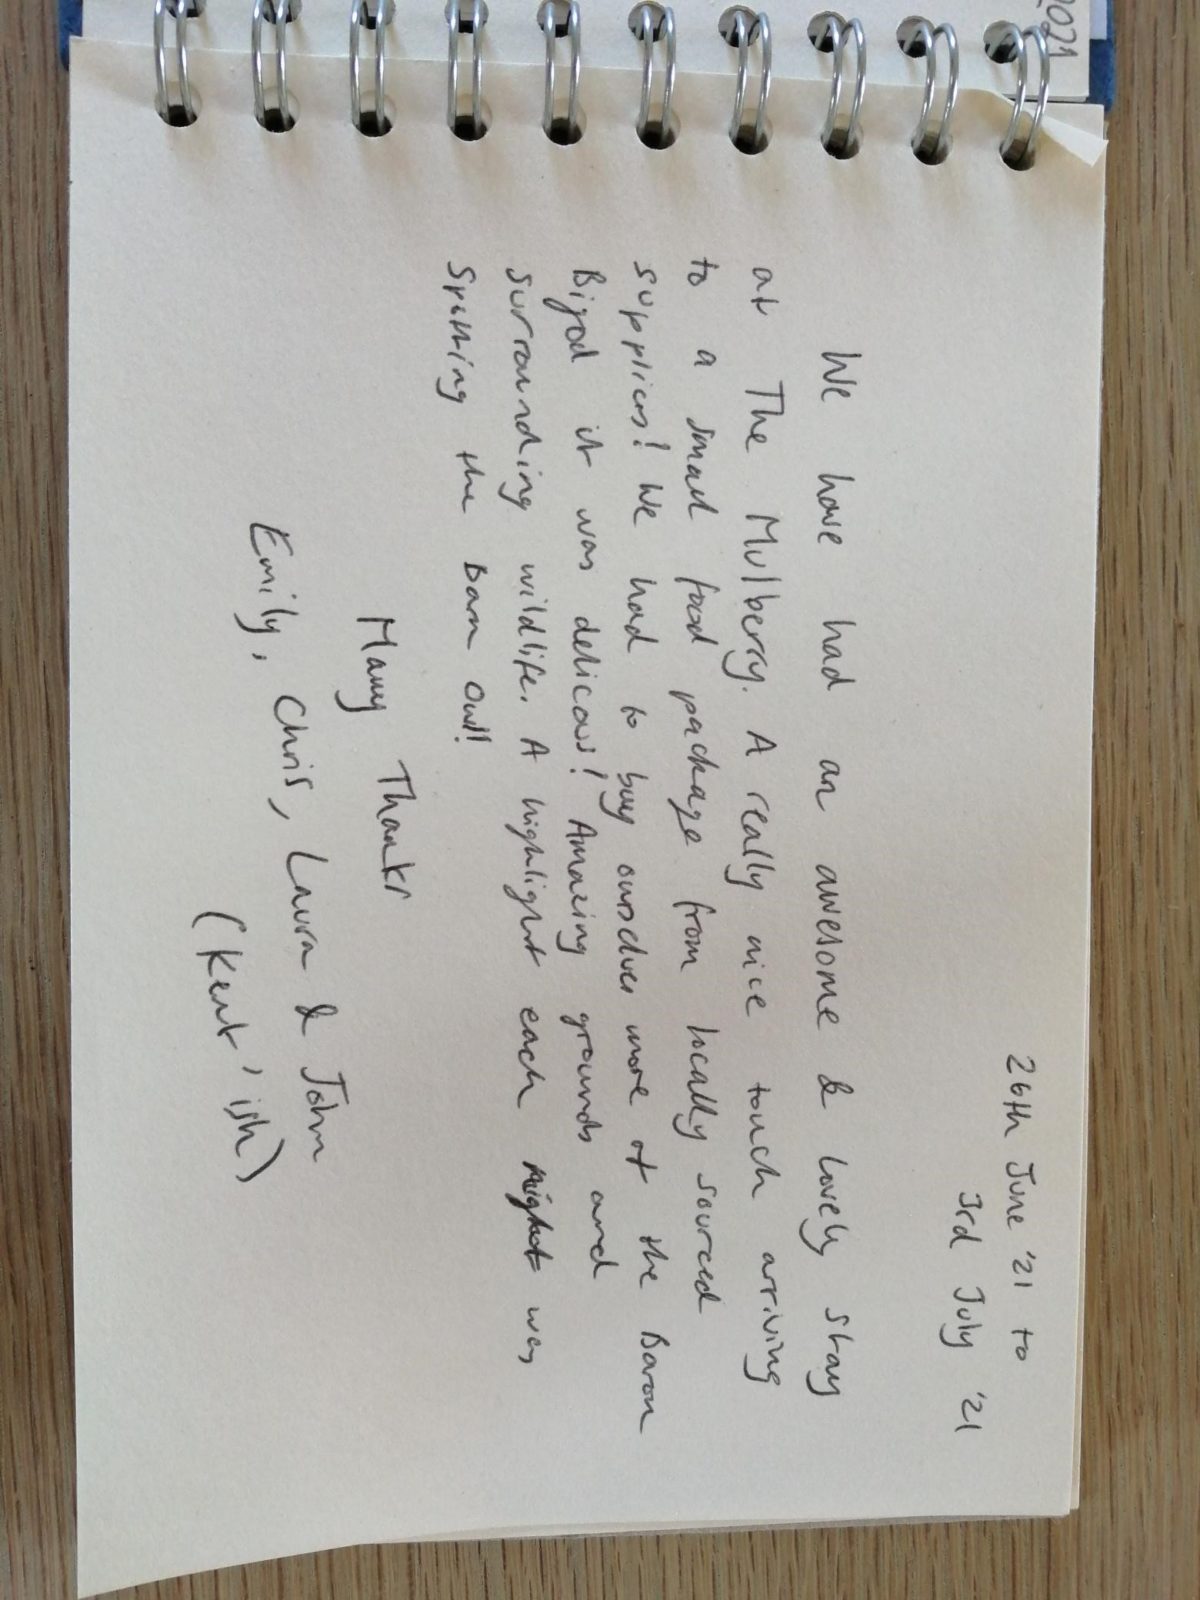 2021
26th June '21 to
3rd July '21
We have had an awesome & lovely stay
at The Mulberry. A really nice touch arriving
to a small food package from locally sourced
supplies! We had to buy ourselves more of the Baron
Bigod it was delicous! Amazing grounds and
surrounding wildlife. A highlight each night was
spotting the barn owl!
Many Thanks
Emily, Chris, Laura & John
(Kent'ish)